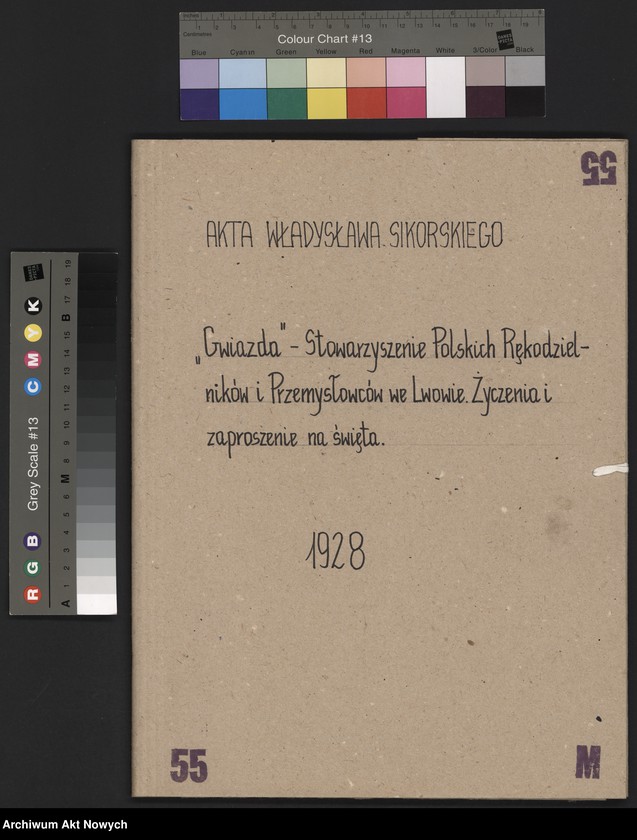 Colour Chart #13
Blue Cyan Green Yellow Red Magenta White 3/Color Black
55
AKTA WŁADYSŁAWA SIKORSKIEGO
„Gwiazda" - Stowarzyszenie Polskich Rękodziel-
ników i Przemysłowców we Lwowie. Życzenia i
zaproszenie na święta.
1928
55
M
Grey Scale #13
R G B C M Y K
A 1 2 3 4 5 6 M 8 9 10 11 12 13 14 15 B 17 18 19
Archiwum Akt Nowych